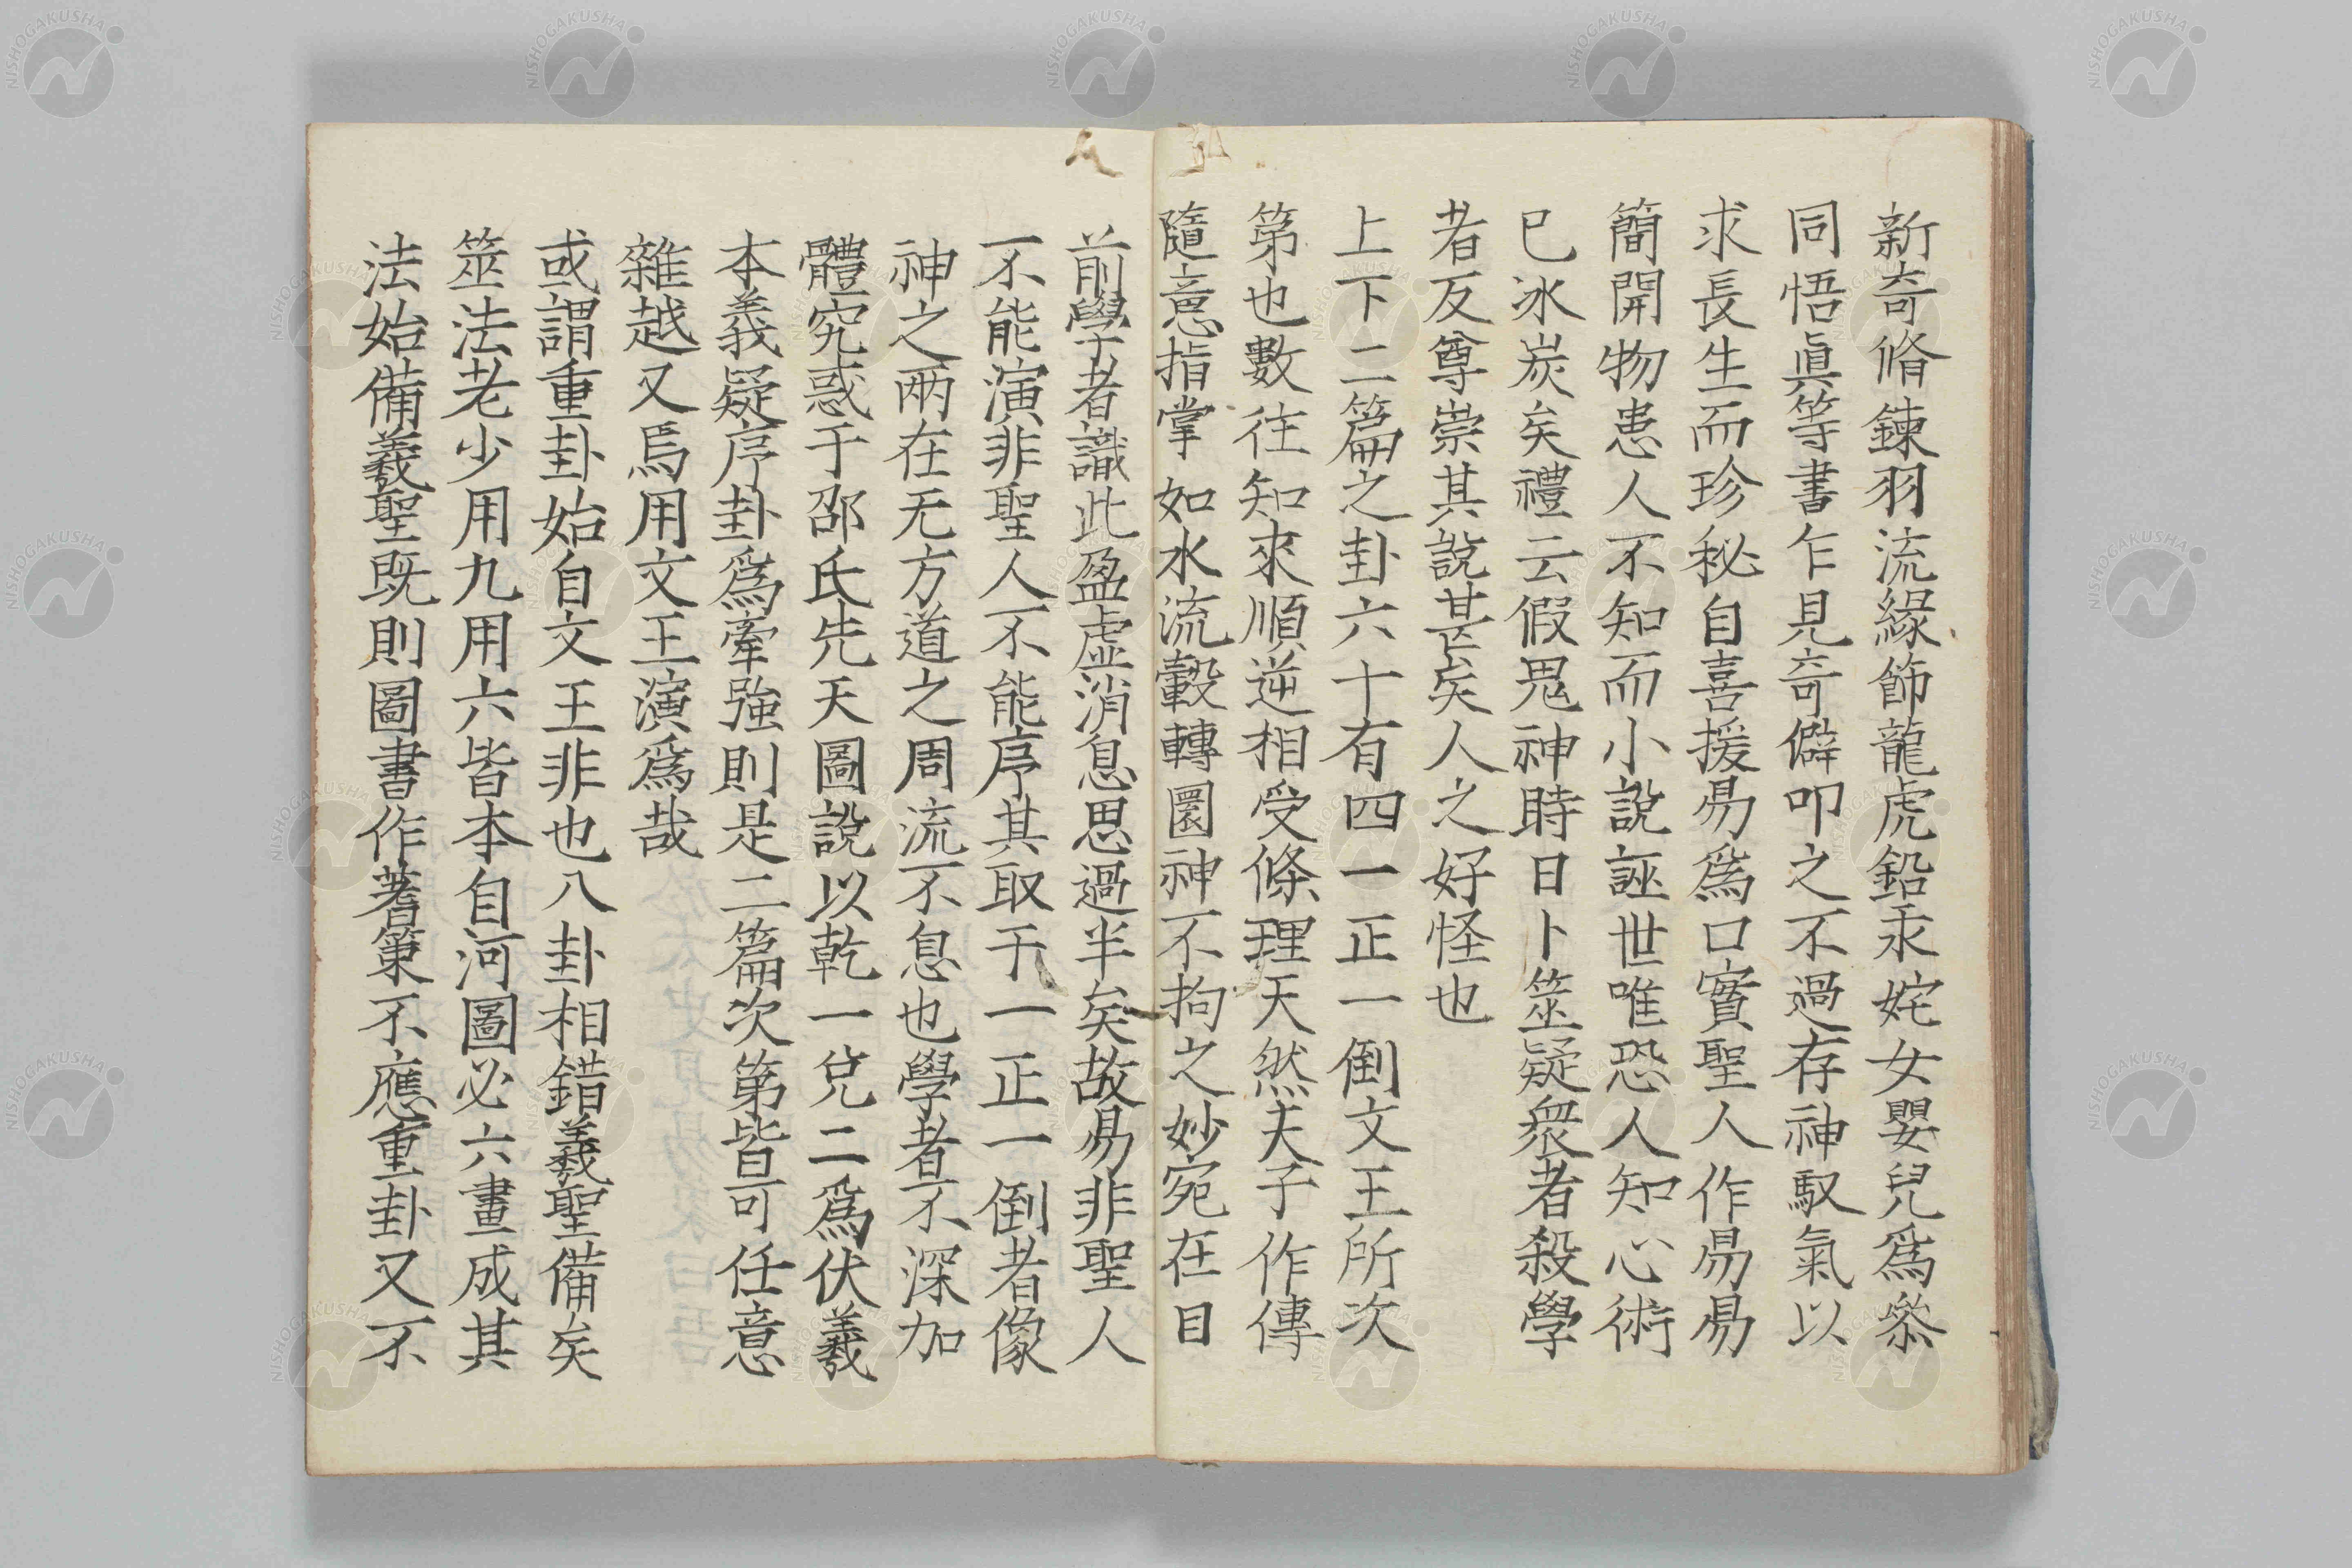 新奇脩鍊羽流緣飾龍虎鉛汞姹女嬰兒爲叅
同悟眞等書乍見奇僻叩之不過存神馭氣以
求長生而珍秘自喜援易爲口實聖人作易易
簡開物患人不知而小說誣世唯恐人知心術
已冰炭矣禮云假鬼神時日卜筮疑衆者殺學
者反尊崇其說甚矣人之好怪也
上下二篇之卦六十有四一正一倒文王所次
第也數往知來順逆相受條理天然夫子作傳
隨意指掌如水流轂轉圜神不拘之妙宛在目
前學者識此盈虛消息思過半矣故易非聖人
不能演非聖人不能序其取于一正一倒者像
神之兩在无方道之周流不息也學者不深加
體究惑于邵氏先天圖說以乾一兌二爲伏羲
本義疑序卦爲牽強則是二篇次第皆可任意
雜越又焉用文王演爲哉
或謂重卦始自文王非也八卦相錯羲聖備矣
筮法老少用九用六皆本自河圖必六畫成其
法始備羲聖既則圖書作蓍策不應重卦又不
NISHOGAKUSHA